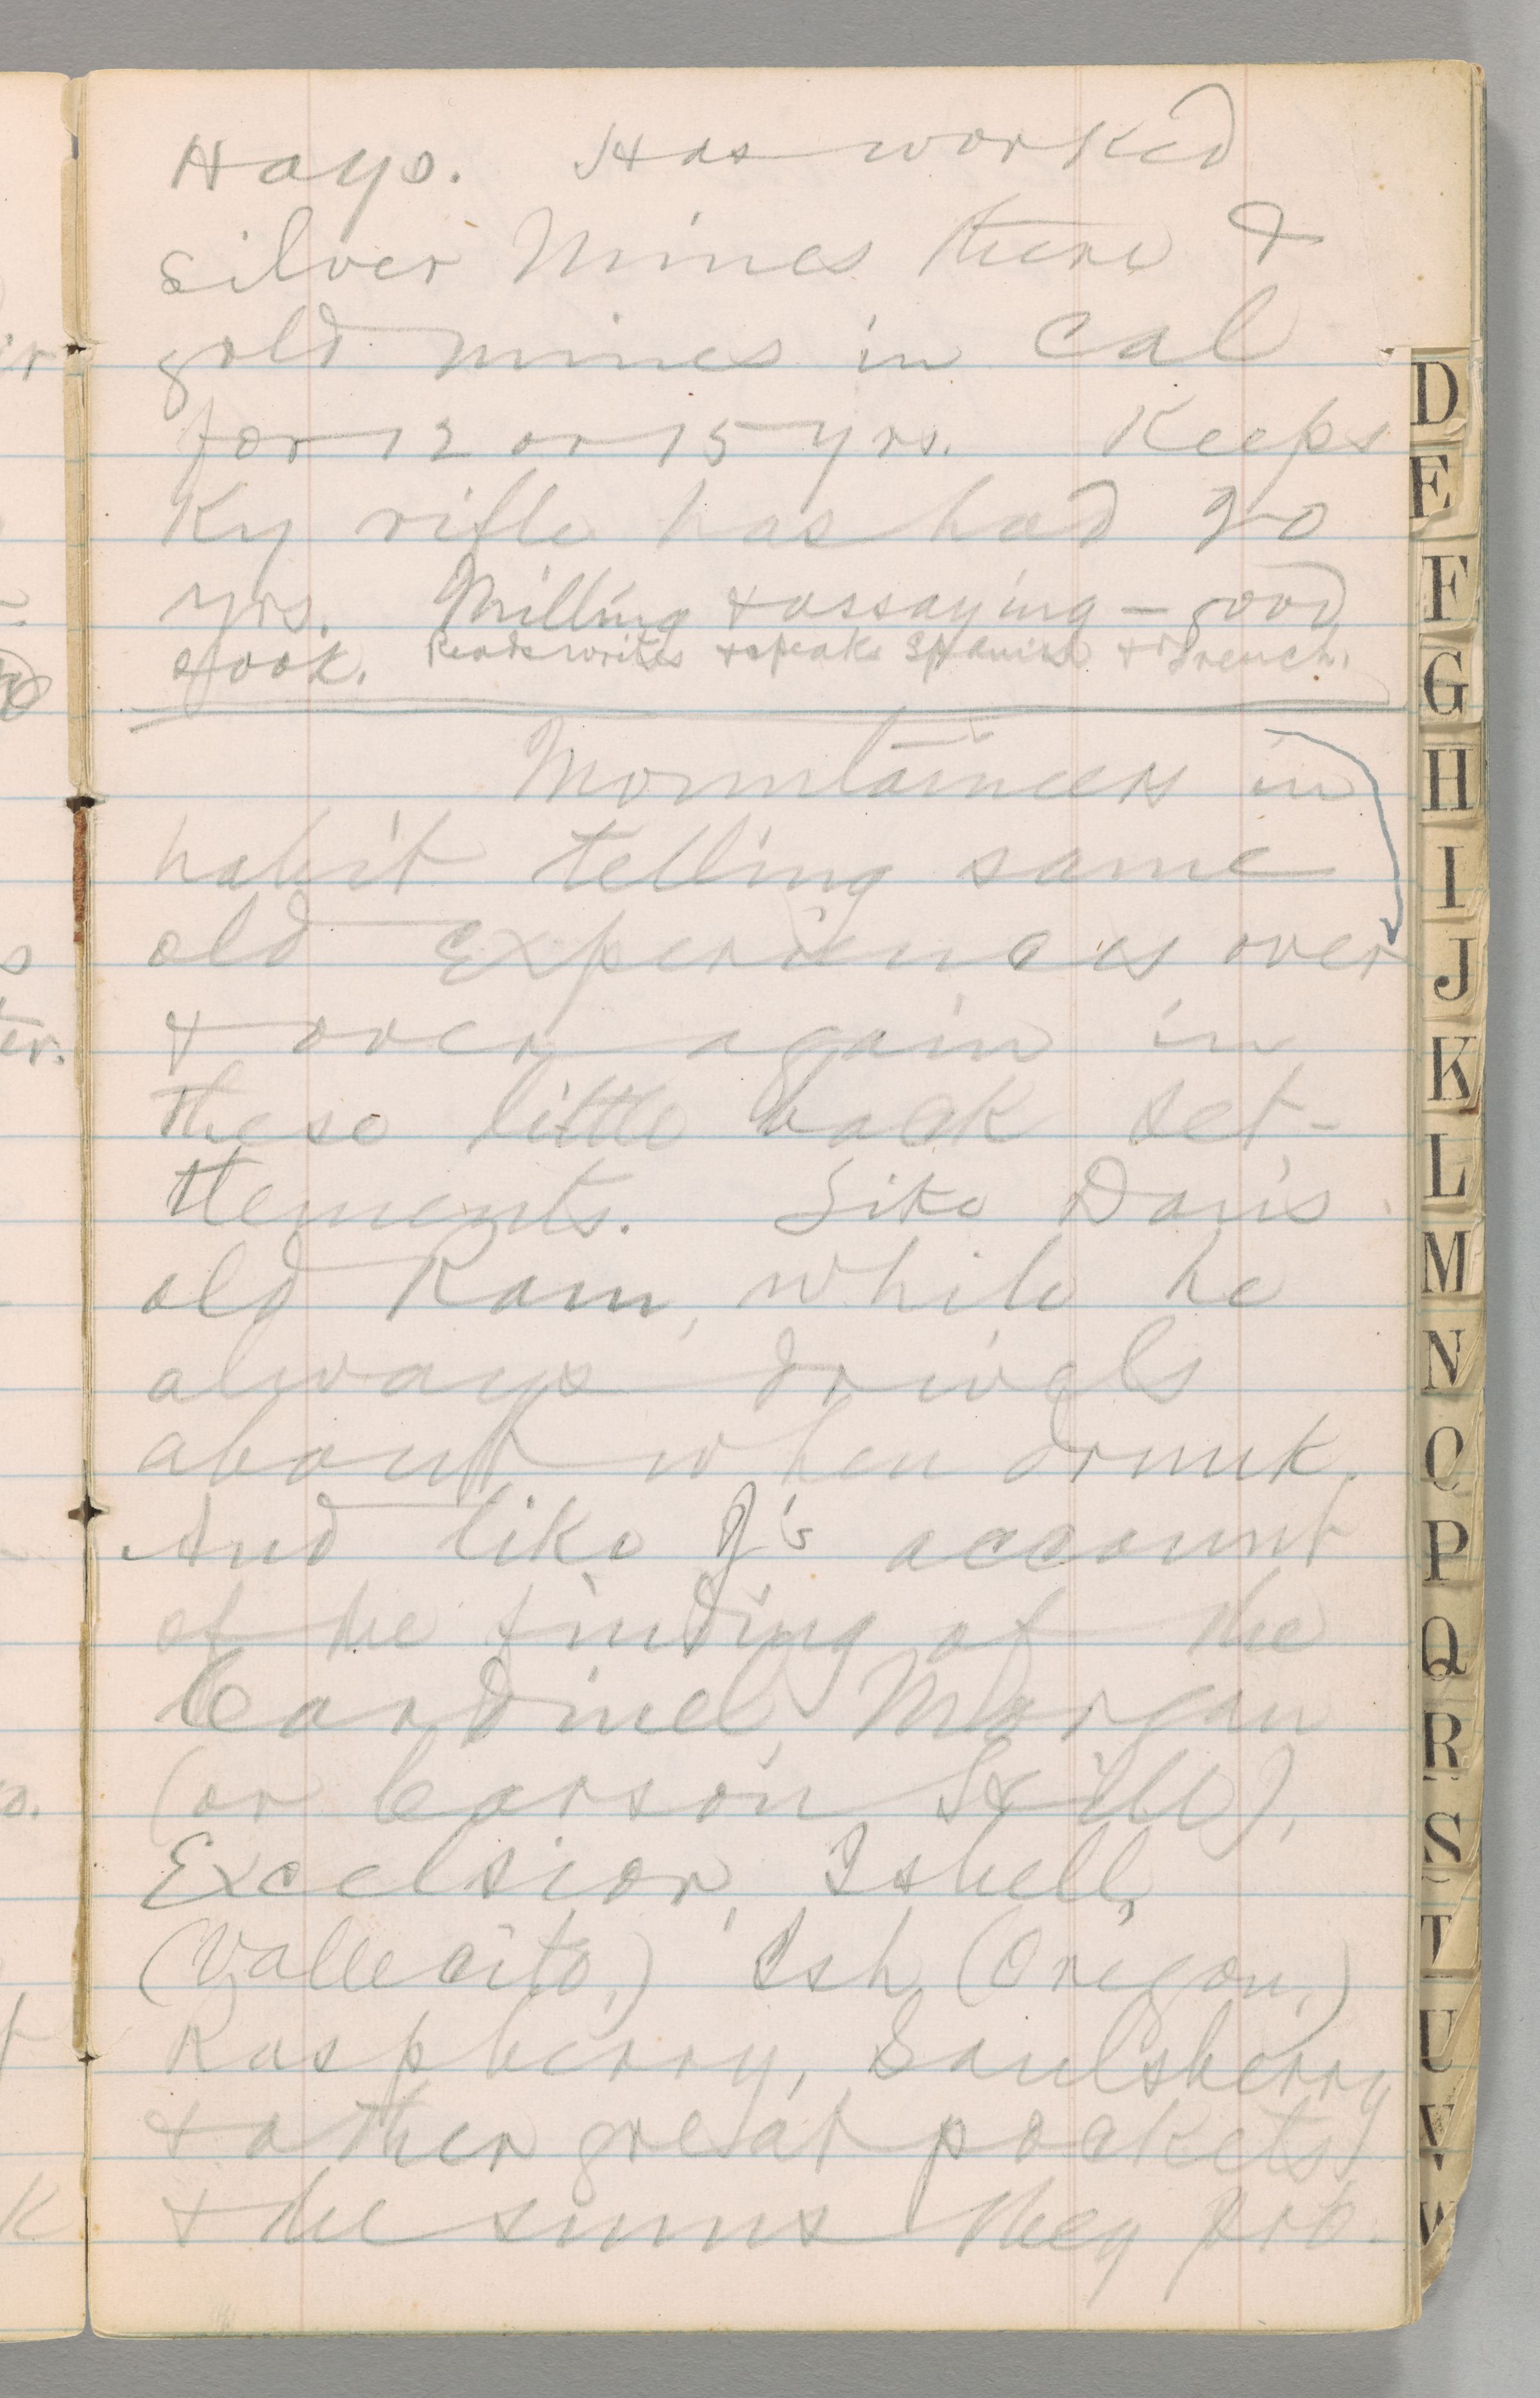 Hays. Has worked
silver mines there &
gold mines in Cal
for 12 or 15 yrs. Keeps
Ky rifle has had 20
yrs. Milling & assaying – good
cook. Reads writes & speaks Spanish & French.
Mountaineers in
habit telling same
old experiences over
& over again in
these little back set-
tlements. Like Dan's
old Ram, while he
always drivels
about when drunk.
And like J's account
of the finding of the
Cardinel, Morgan
(or Carson Hill),
Excelsior, Isbell,
(Vallecito,) Ish (Oregon,)
Raspberry, Saulsberry
& other great pockets
& the sums they
D
E
F
G
H
I
J
K
L
M
N
O
P
Q
R
S
T
U
V
W